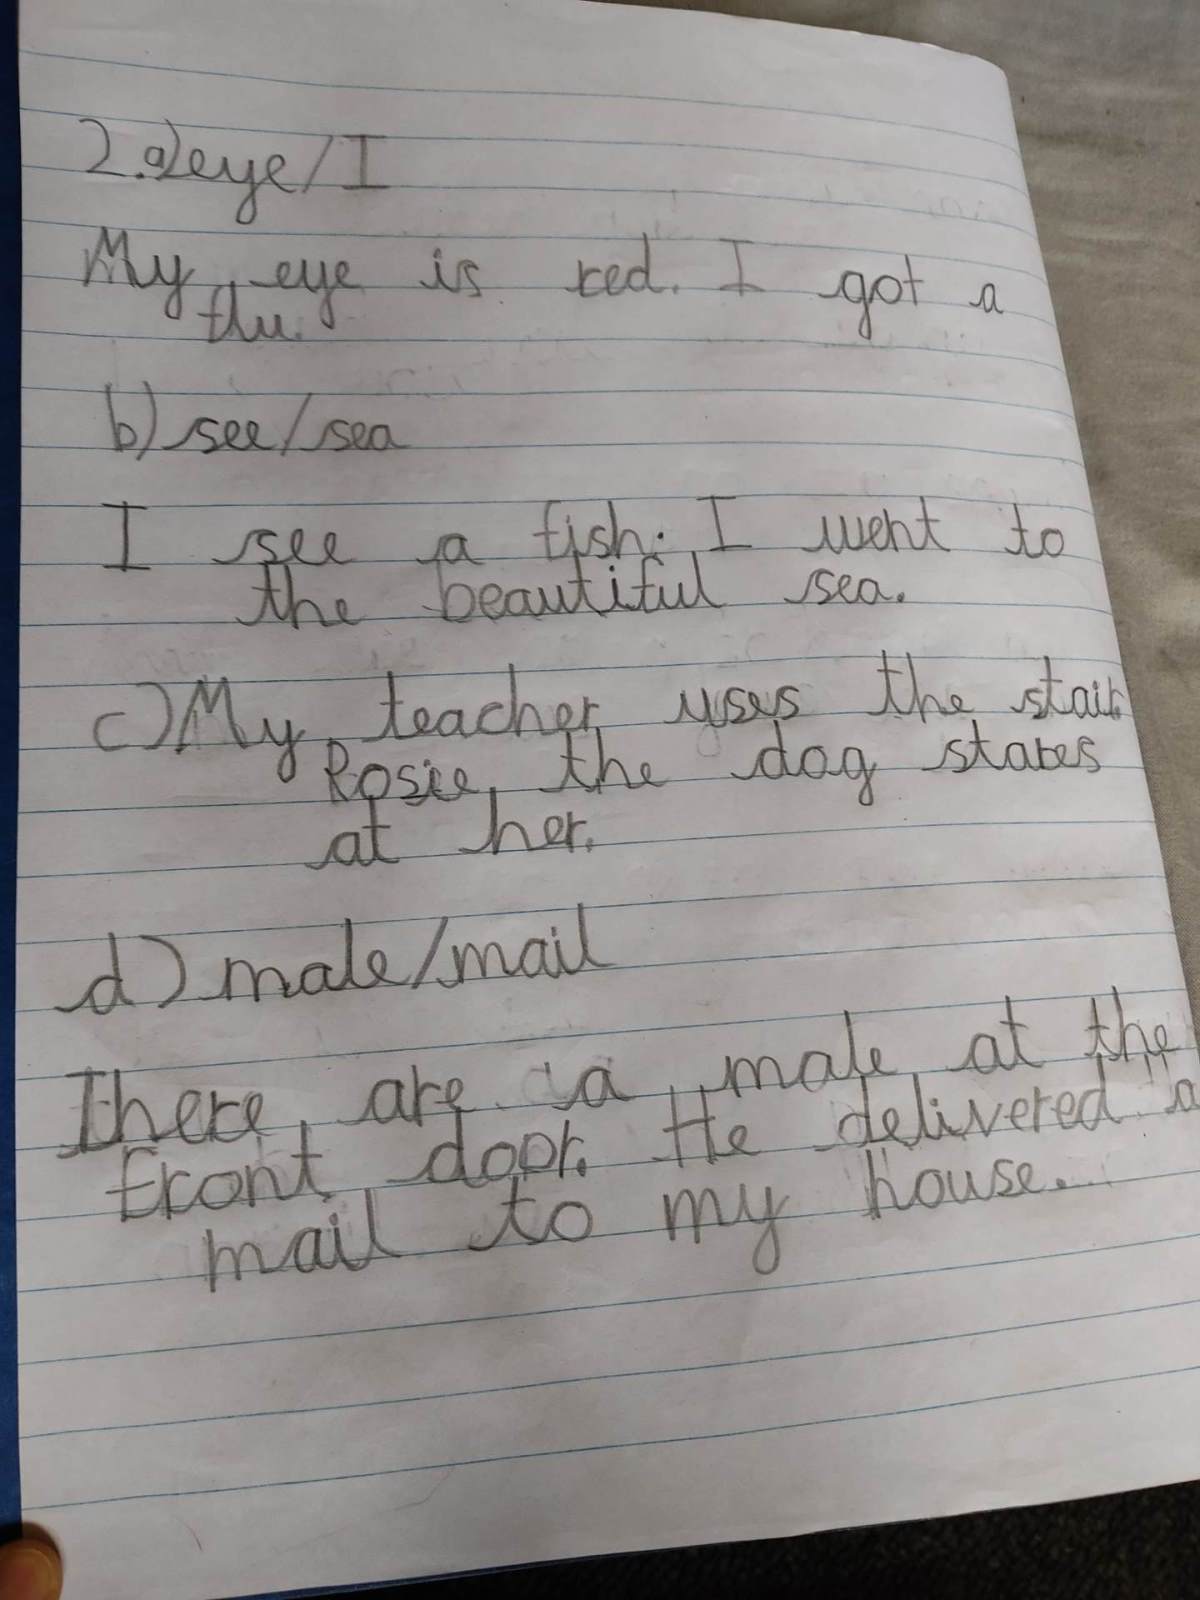 2.a) eye/I
My eye is red. I got a
flu.
b) see/sea
I see a fish. I went to
the beautiful sea.
c) My teacher uses the stair.
Rosie, the dog stares
at her.
d) male/mail
There are a male at the
front door. He delivered a
mail to my house.